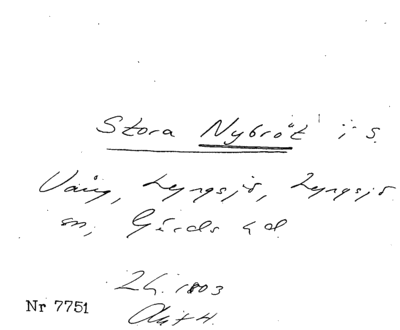 Stora Nybröt i S.
Vång, Lyngsjö, Lyngsjö
sn, Gärds hd
1803
Nr 7751